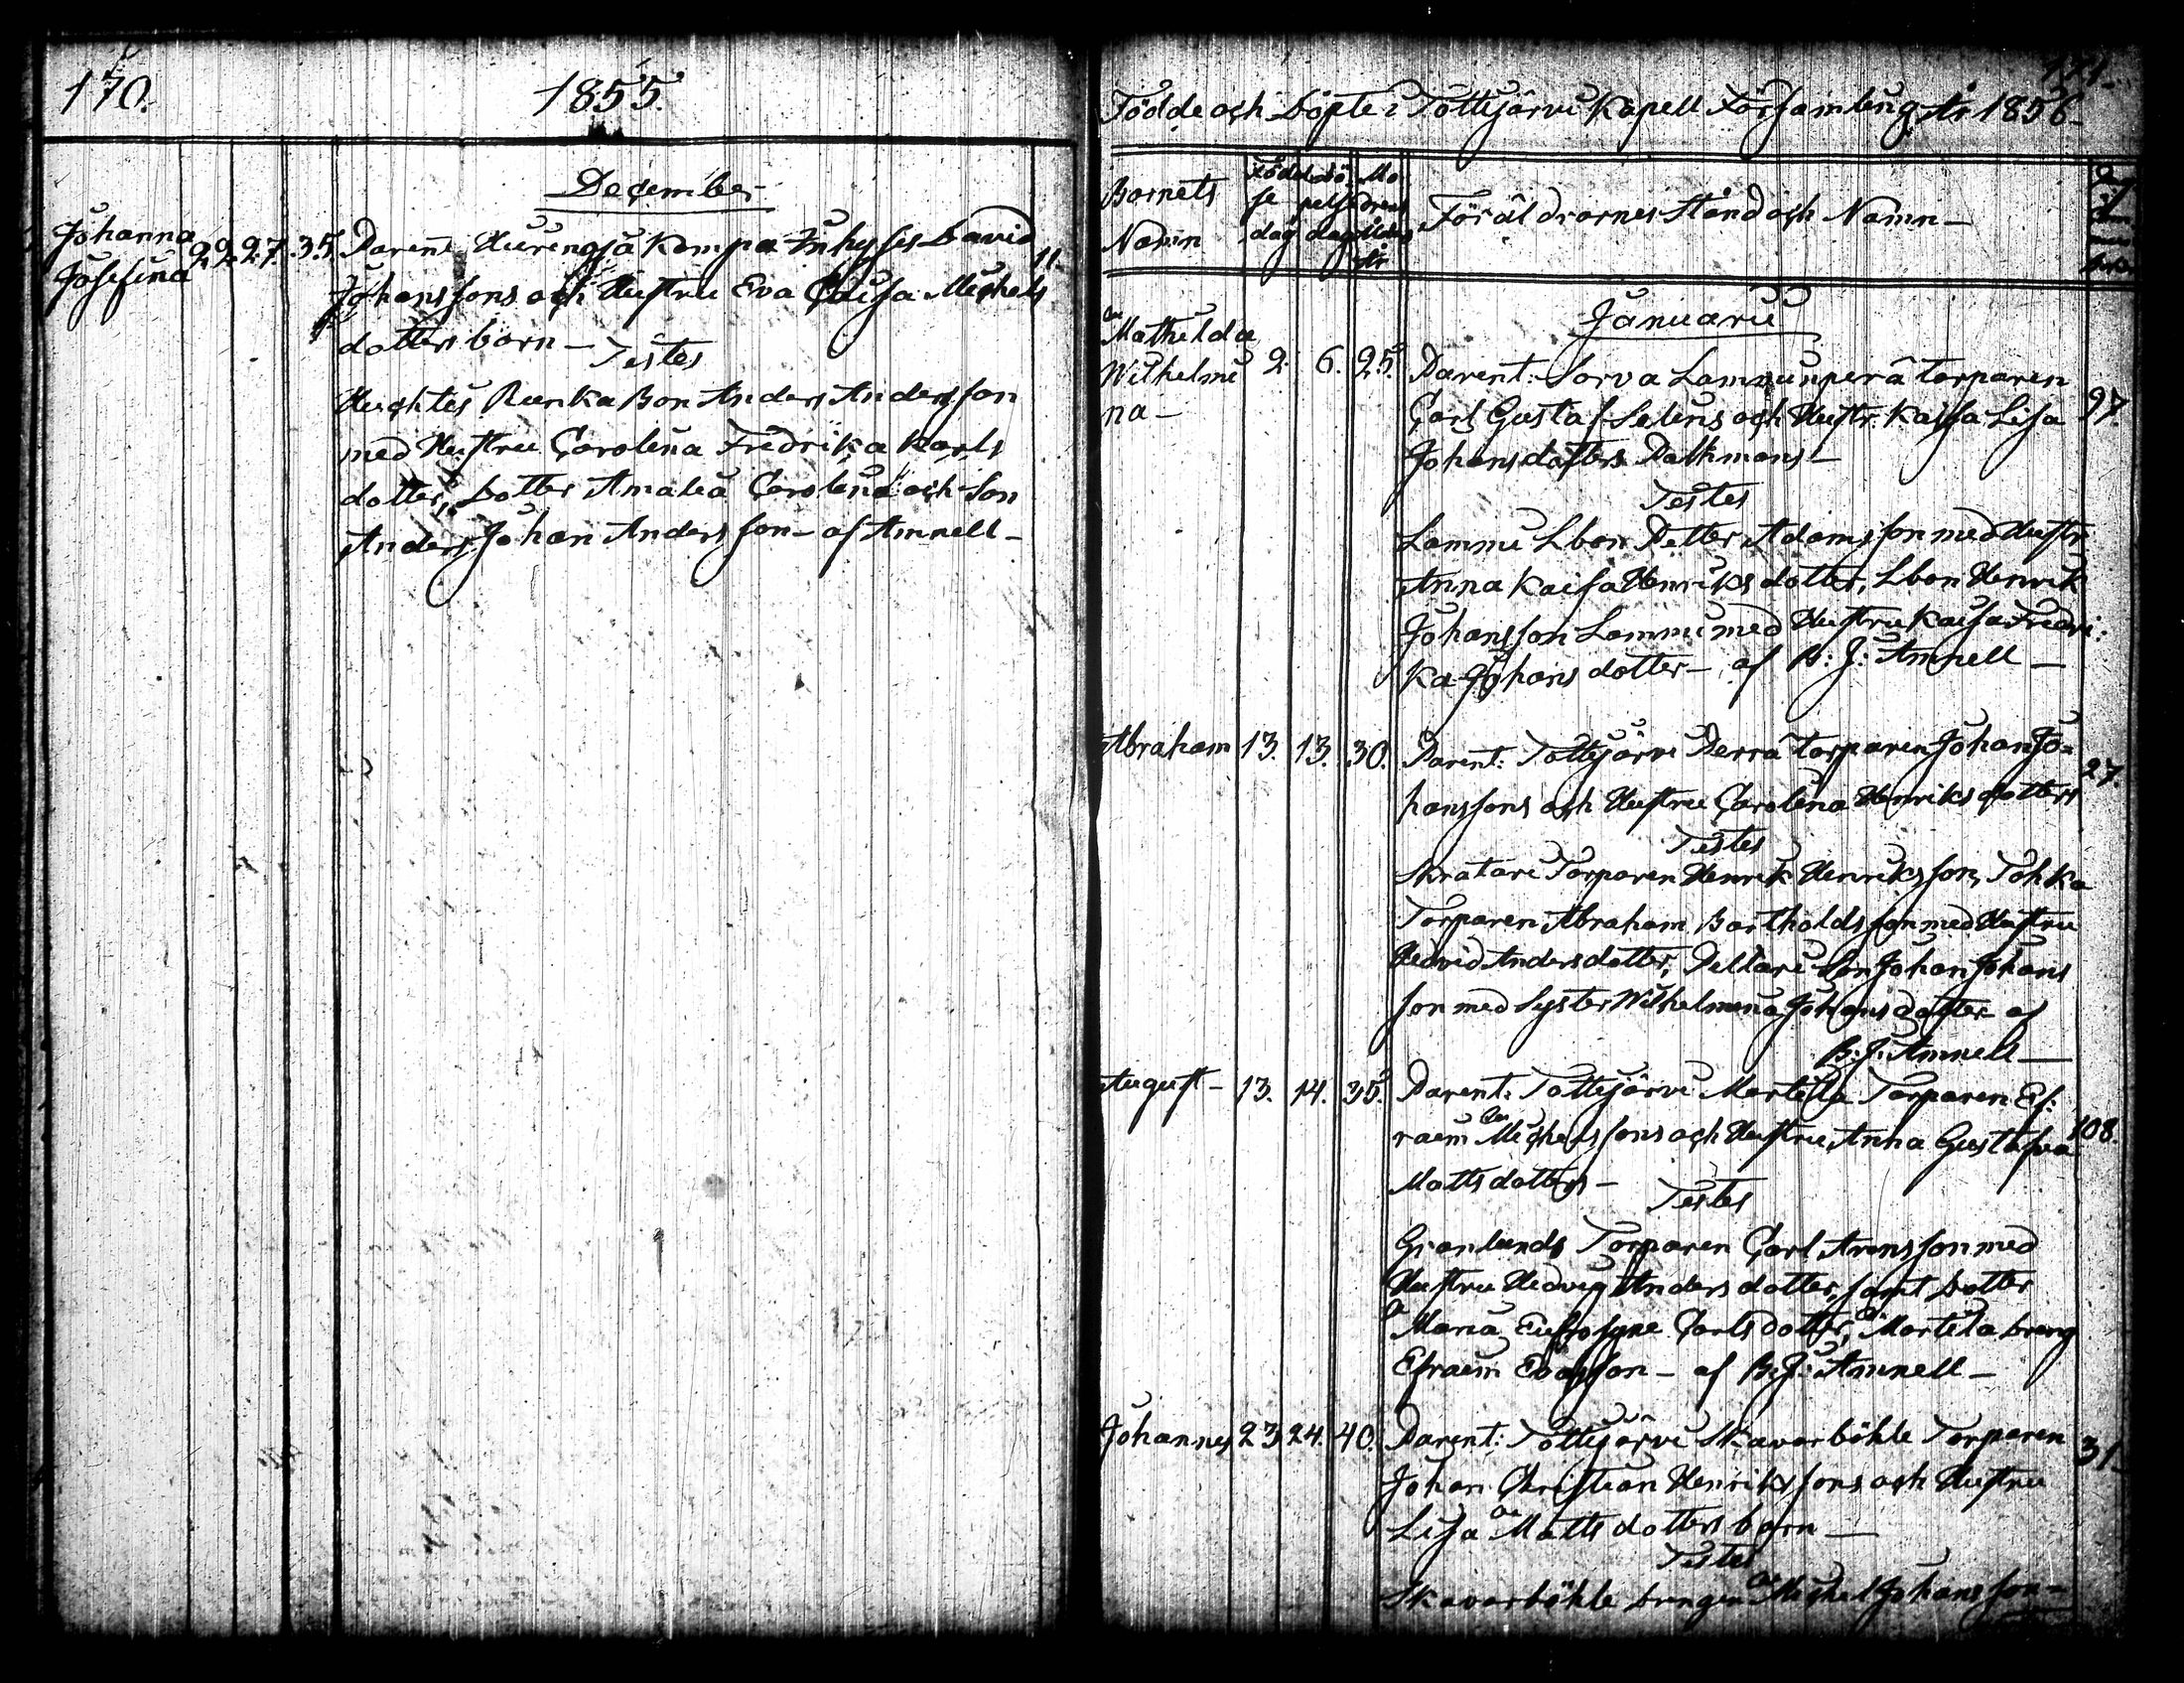 170.
1855.
December
Johanna Josefina
22. 27. 35.
Parent: Hurengjä Kompa Inhyses David
Johanssons och Hustru Eva Caisa Michels
dotters barn —
11.
Testes
Huchtis Runka Bon Anders Andersson
med Hustru Carolina Fredrika Karls
dotter, Dotter Amalia Carolina och Son
Anders Johan Andersson — af Amnell —
171.
Födde och Döpte i Tottijärvi Kapell Församling År 1856 —
Barnets Namn
Föddelse dag
döpelse dag
Modrens Ålders år
Föräldrarnes Stånd och Namn —
Januarii
Mathilda
Wilhelmi
na —
2. 6. 25.
Parent: Sorva Lammunperä torparen
Carl Gustaf Selins och Hustr. Kajsa Lisa
97.
Johansdotters Dalkmans —
Testes
Lammi Lbon Petter Adamsson med Hustr
Anna Kaisa Henriksdotter, Lbon Henrik
Johansson Lammi med Hustru Kaisa Fredri:
ka Johansdotter — af B: J: Amnell —
Abraham 13. 13. 30.
Parent: Tottijärvi Perrä torparen Johan Jo=
27.
hanssons och Hustru Carolina Henriksdotters
Testes
Skratari Torparen Henrik Henriksson, Tohka
Torparen Abraham Bartholdsson med Hustru
Hedvid Andersdotter, Deldari Son Johan Johans
son med Syster Wilhelmina Johansdotter af
B: J: Amnell —
August — 13. 14. 35.
Parent: Tottijärvi Martella Torparen Ef:
raim Michelssons och Hustru Anna Gustafva
108.
Mattsdotters —
Testes
Granlunds Torparen Carl Aronsson med
Hustru Hedvig Andersdotter, samt Dotter
Maria Eufrosyne Carlsdotter, Martela Dreng
Efraim Evasson — af B: J: Amnell —
Johannes 23 24. 40.
Parent: Tottijärvi Skavarböhle Torparen
31
Johan Christian Henrikssons och Hustru
Lisa Mattsdotters barn —
Testes
Skavarböhle Drengen Michel Johansson —